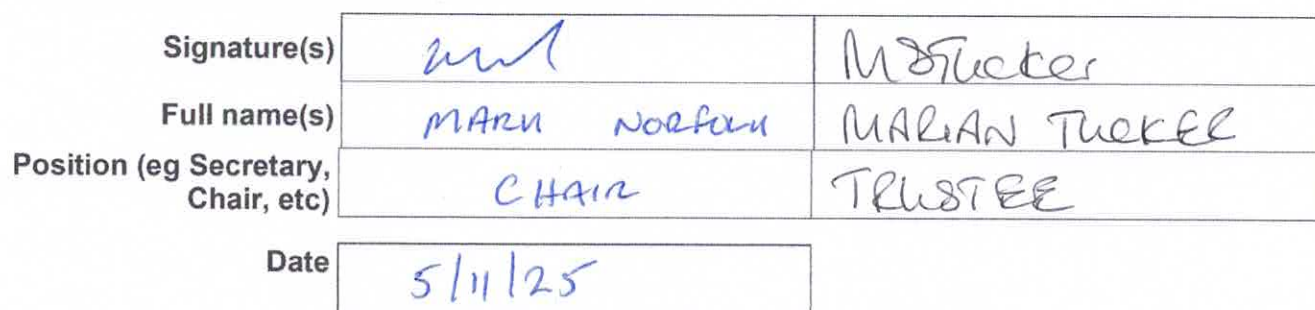 Signature(s) MSTucker
Full name(s) MARK NORFOLK MARIAN TUCKER
Position (eg Secretary,
Chair, etc) CHAIR TRUSTEE
Date 5/11/25